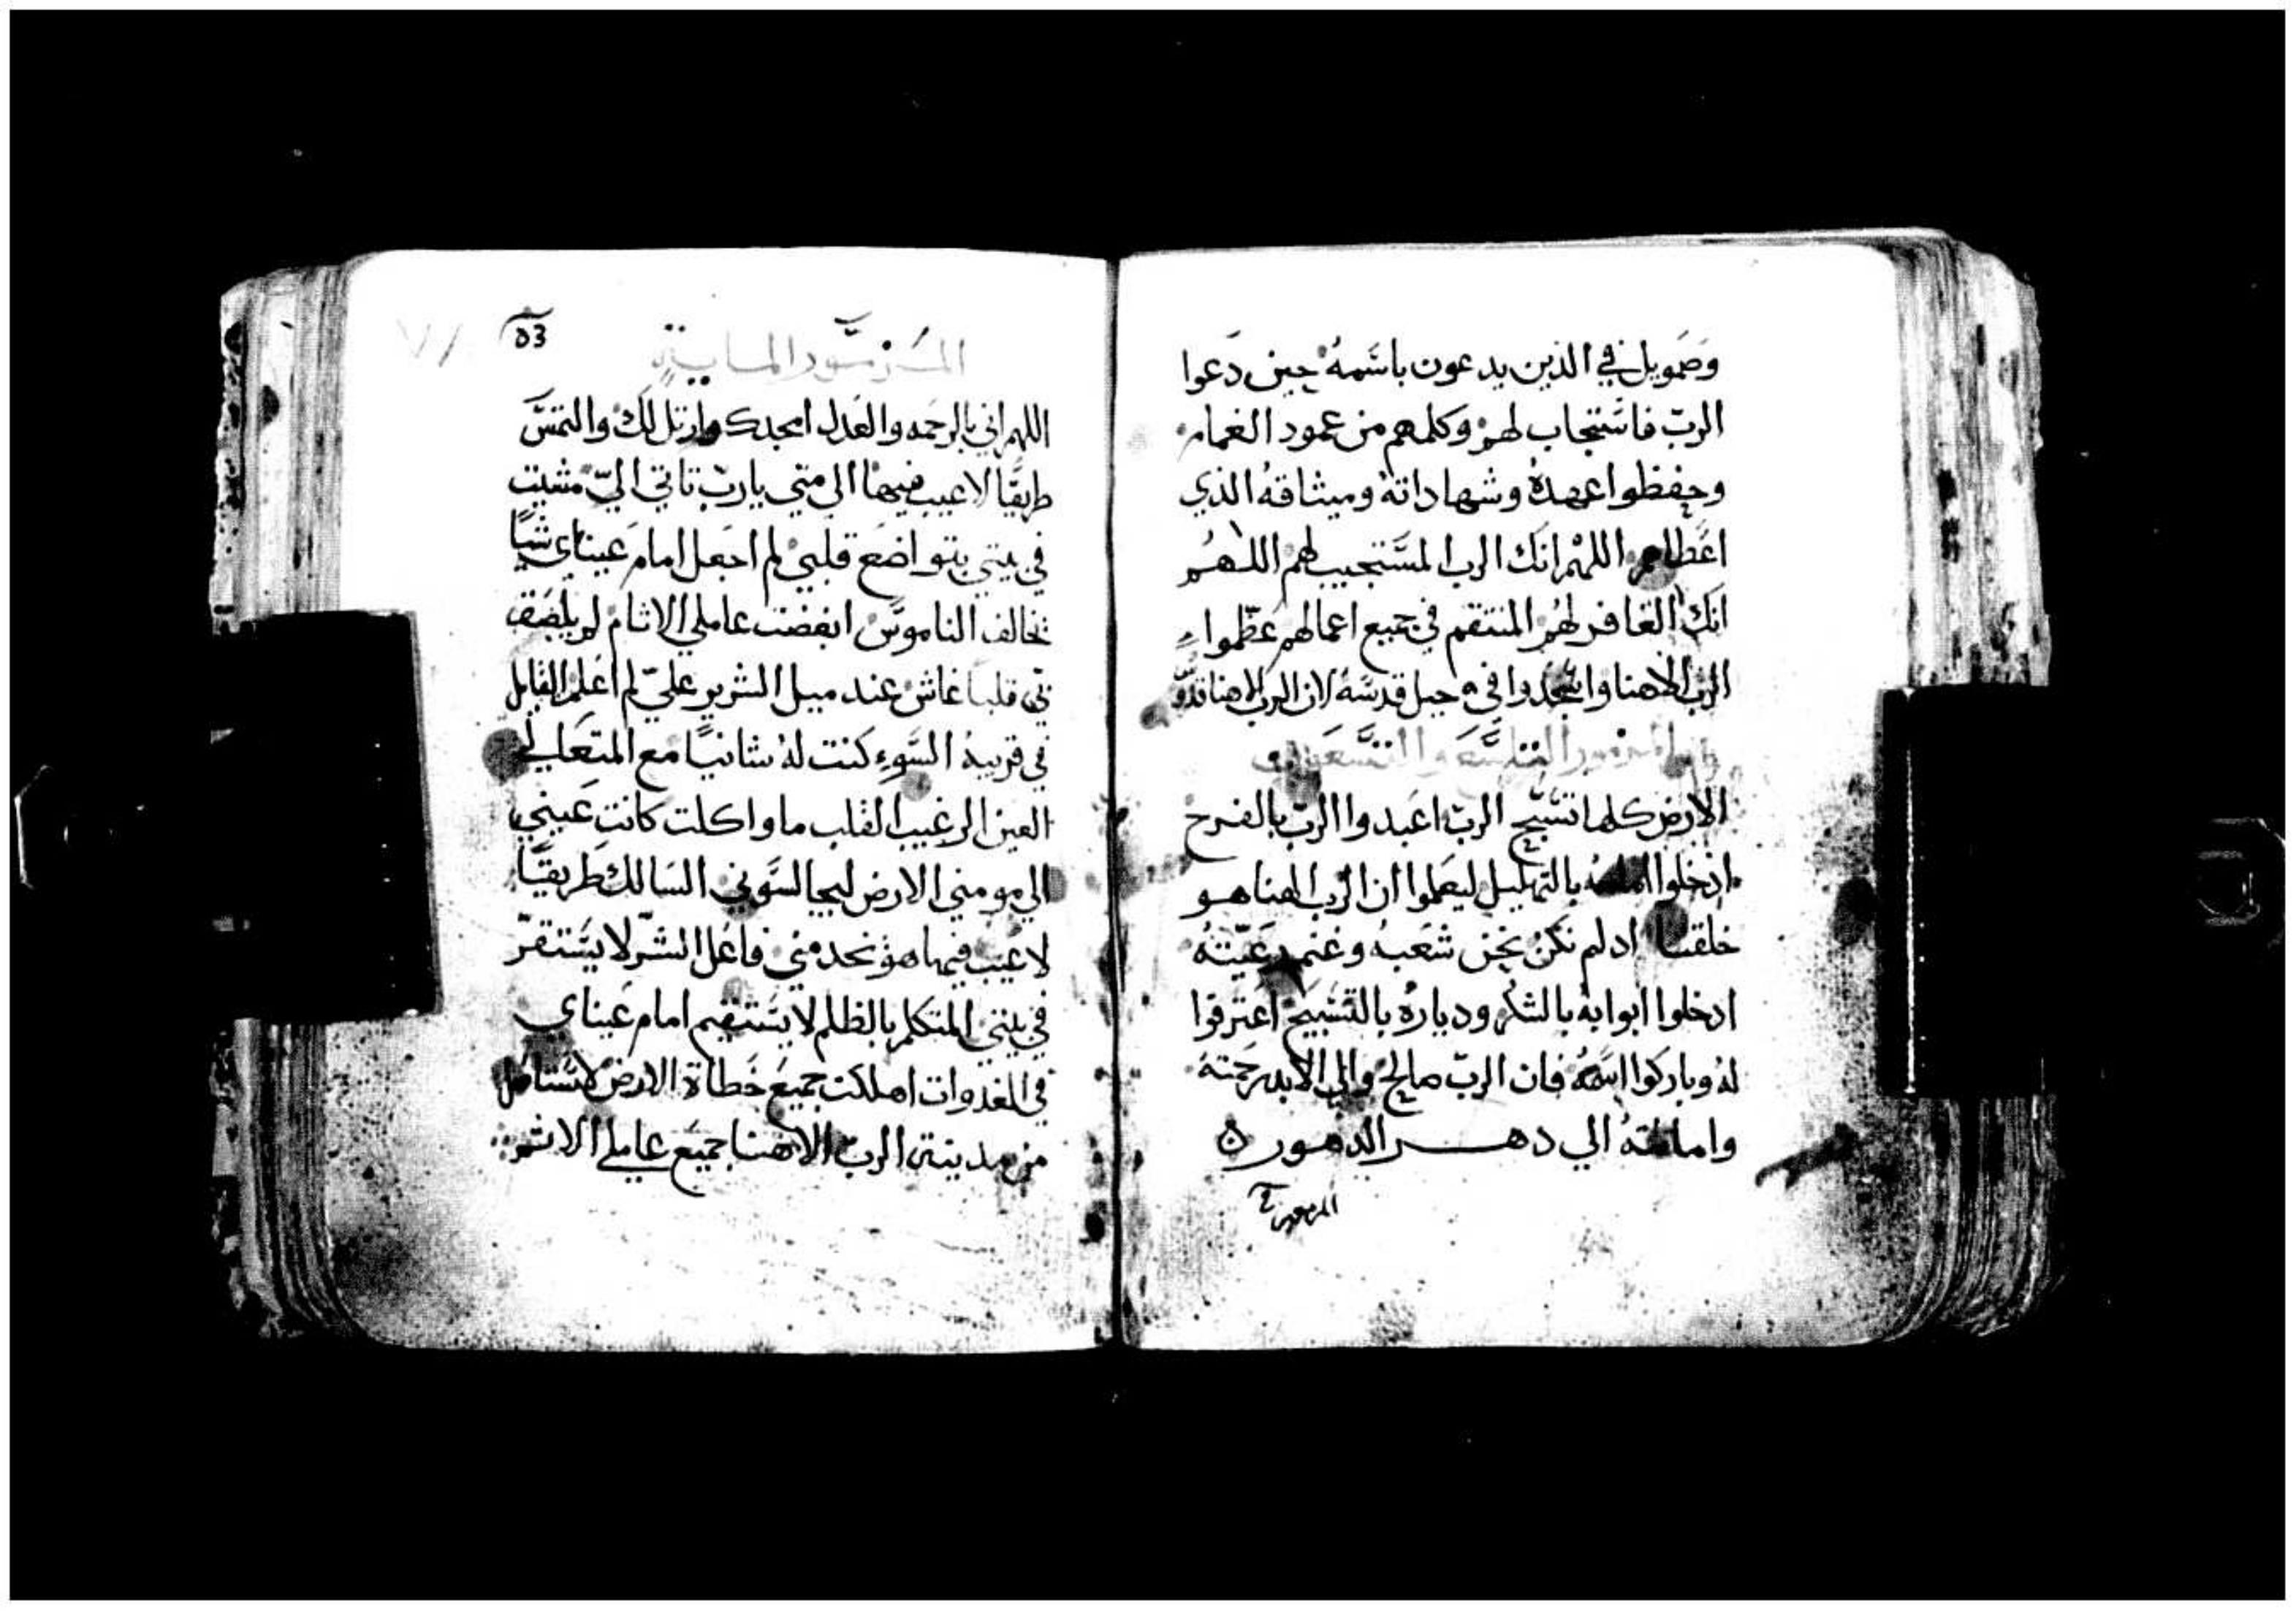 وصمويل في الذين يدعون باسمه حين دعوا
الرب فاستجاب لهم وكلمهم من عمود الغمام
وحفظوا عهده وشهاداته وميثاقه الذي
اعطاهم اللهم انك الرب المستجيب لهم اللهم
انك الغافر لهم المنتقم في جميع اعمالهم عظموا
الرب الاهنا واسجدوا في جبل قدسه لان الرب الاهنا قدوس
المزمور التاسع والتسعون
الارض كلها تسبح الرب اعبدوا الرب بالفرح
ادخلوا امامه بالتهليل ليعلموا ان الرب الهنا هو
خلقنا اد لم نكن نحن شعبه وغنم رعيته
ادخلوا ابوابه بالشكر ودياره بالتسبيح اعترفوا
له وباركوا اسمه فان الرب صالح والي الابد رحمته
وامانته الي دهر الدهور
المزمور
المزمور الماية
اللهم اني بالرحمه والعدل امجدك وارتل لك والتمس
طريقا لا عيب فيها الي متي يارب تاتي الي مشيت
في بيتي بتواضع قلبي لم اجعل امام عيناي شيا
يخالف الناموس ابغضت عاملي الاثام لم يلصق
بي قلبا غاش عند ميل الشرير علي لم اعلم القايل
في قريبه السوء كنت له شانيا مع المتعالي
العين الرغيب القلب ما واكلت كانت عيني
الي مومني الارض ليجالسوني السالك طريقا
لا عيب فيها هو نحدمني فاعل الشر لا يستقر
في بيتي المتكلم بالظلم لا يستقيم امام عيناي
في الغدوات اهلكت جميع خطاة الارض لاستاصل
من مدينة الرب الاهنا جميع عاملي الاثم